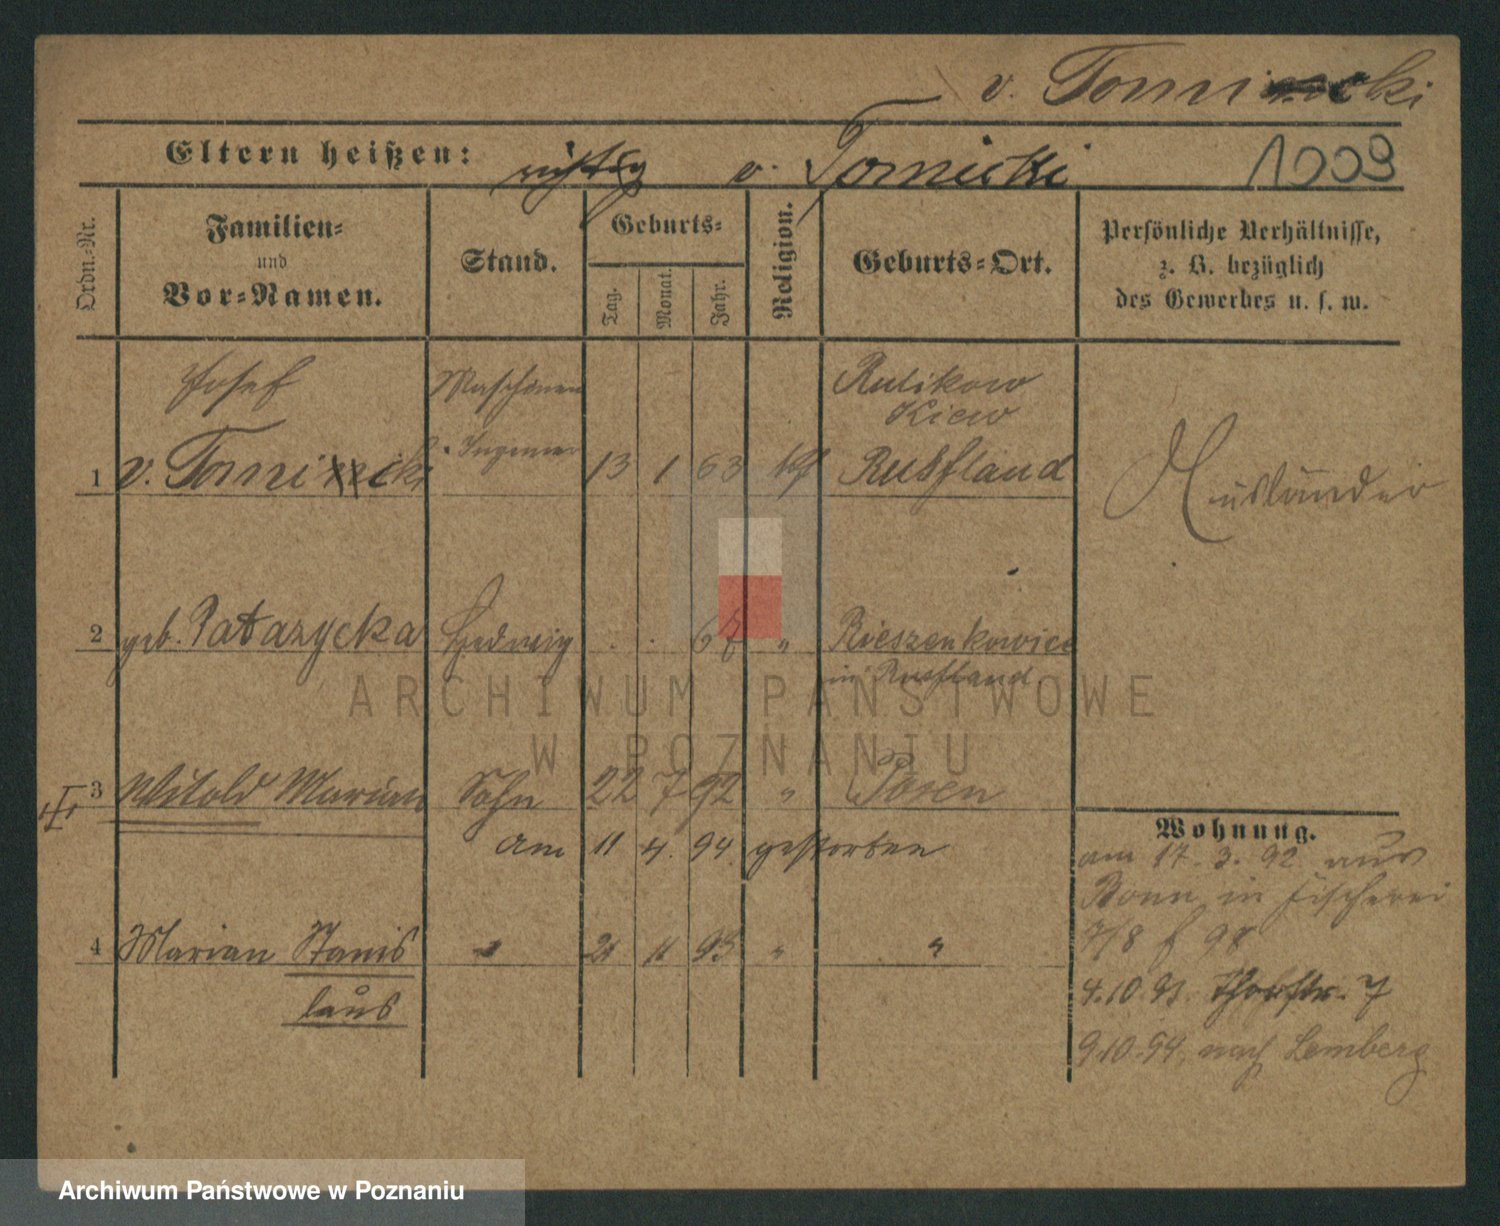 v. Tomicki
Eltern heißen: richtig v. Tomicki 1009
Ordn.-Nr.
Familien- und Vor-Namen.
Stand.
Geburts-
Tag. Monat. Jahr.
Religion.
Geburts-Ort.
Persönliche Verhältnisse,
z. B. bezüglich
des Gewerbes u. s. w.
Josef Maschinen Rulikow
Kiew
1 v. Tomicki Ingenieur 13 1 63 kf Rußland Ausländer
2 geb. Hedwig . . 67 "
in Rußland
ARCHIWUM PAŃSTWOWE
W POZNANIU
3 Witold Marian Sohn 22 7 92 " Posen
am 11 4. 94. gestorben
Wohnung.
am 17. 3. 92 aus
Bonn in Fischerei
7/8
4 Marian Stanis " 11 93 " "
laus
4.10.93. 7
9.10.94. nach Lemberg
Archiwum Państwowe w Poznaniu